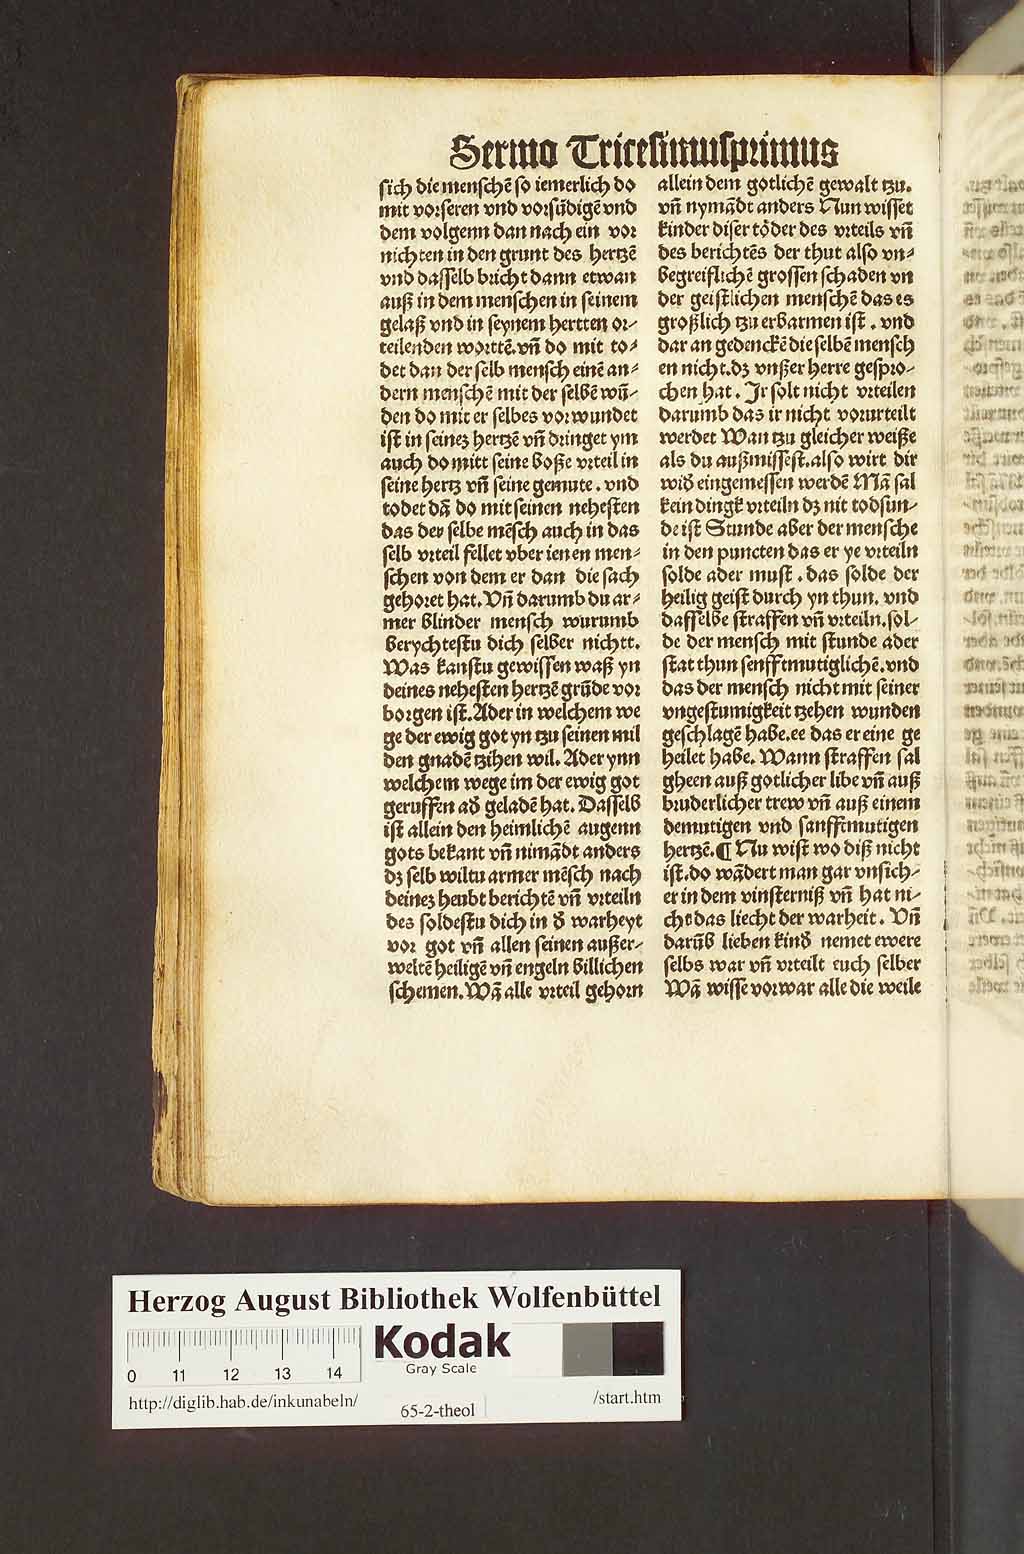 Sermo Tricesimusprimus
sich die menschē so iemerlich do
mit vorseren vnd vorsūdigē vnd
dem volgenn dan nach ein vor
nichten in den grunt des hertzē
vnd dasselb bricht dann etwan
auß in dem menschen in seinem
gelaß vnd in seynem hertten or⸗
teilenden worttē. vn̄ do mit to⸗
det dan der selb mensch einē an⸗
dern menschē mit der selbē wū⸗
den do mit er selbes vorwundet
ist in seinez hertzē vn̄ dringet ym
auch do mitt seine boße vrteil in
seine hertz vn̄ seine gemute. vnd
todet dā do mit seinen nehesten
das der selbe mēsch auch in das
selb vrteil fellet vber ienen men⸗
schen von dem er dan die sach
gehoret hat. Vn̄ darumb du ar⸗
mer blinder mensch wurumb
berychtestu dich selber nichtt.
Was kanstu gewissen waß yn
deines nehesten hertzē grūde vor
borgen ist. Ader in welchem we
ge der ewig got yn tzu seinen mil
den gnadē tzihen wil. Ader ynn
welchem wege im der ewig got
geruffen ad geladē hat. Dasselb
ist allein den heimlichē augenn
gots bekant vn̄ nimādt anders
dz selb wiltu armer mēsch nach
deinez heubt berichtē vn̄ vrteiln
des soldestu dich in d warheyt
vor got vn̄ allen seinen außer⸗
weltē heiligē vn̄ engeln billichen
schemen. Wā alle vrteil gehorn
allein dem gotlichē gewalt tzu.
vn̄ nymādt anders Nun wisset
kinder diser töder des vrteils vn̄
des berichtēs der thut also vn⸗
begreiflichē grossen schaden vn
der geistlichen menschē das es
großlich tzu erbarmen ist. vnd
dar an gedenckē die selbē mensch
en nicht. dz vnßer herre gespro⸗
chen hat. Ir solt nicht vrteilen
darumb das ir nicht vorurteilt
werdet Wan tzu gleicher weiße
als du außmissest. also wirt dir
wid eingemessen werdē Mā sal
kein dingk vrteiln dz nit todsun⸗
de ist Stunde aber der mensche
in den puncten das er ye vrteiln
solde ader must. das solde der
heilig geist durch yn thun. vnd
dasselbe straffen vn̄ vrteiln. sol⸗
de der mensch mit stunde ader
stat thun senfftmutiglichē. vnd
das der mensch nicht mit seiner
vngestumigkeit tzehen wunden
geschlagē habe. ee das er eine ge
heilet habe. Wann straffen sal
gheen auß gotlicher libe vn̄ auß
bruderlicher trew vn̄ auß einem
demutigen vnd sanfftmutigen
hertzē. ¶ Nu wist wo diß nicht
ist. do wādert man gar vnsich⸗
er in dem vinsterniß vn̄ hat ni⸗
cht das liecht der warheit. Vn̄
darūb lieben kind nemet ewere
selbs war vn̄ vrteilt euch selber
Wā wisse vorwar alle die weile
Herzog August Bibliothek Wolfenbüttel
Kodak
Gray Scale
0 11 12 13 14
http://diglib.hab.de/inkunabeln/
65-2-theol
/start.htm